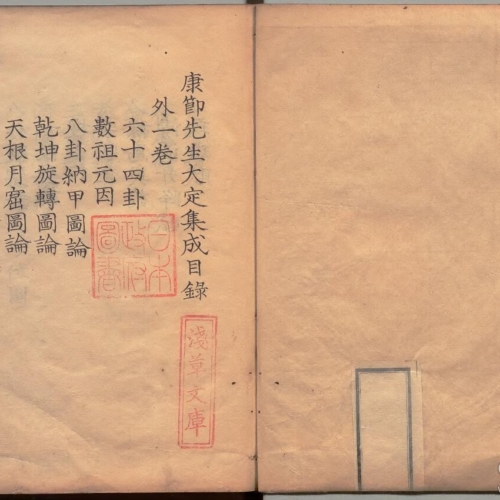 康節先生大定集成目錄
外一卷
六十四卦
數祖元因
八卦納甲圖論
乾坤旋轉圖論
天根月窟圖論
日本
政府
圖書
淺草文庫